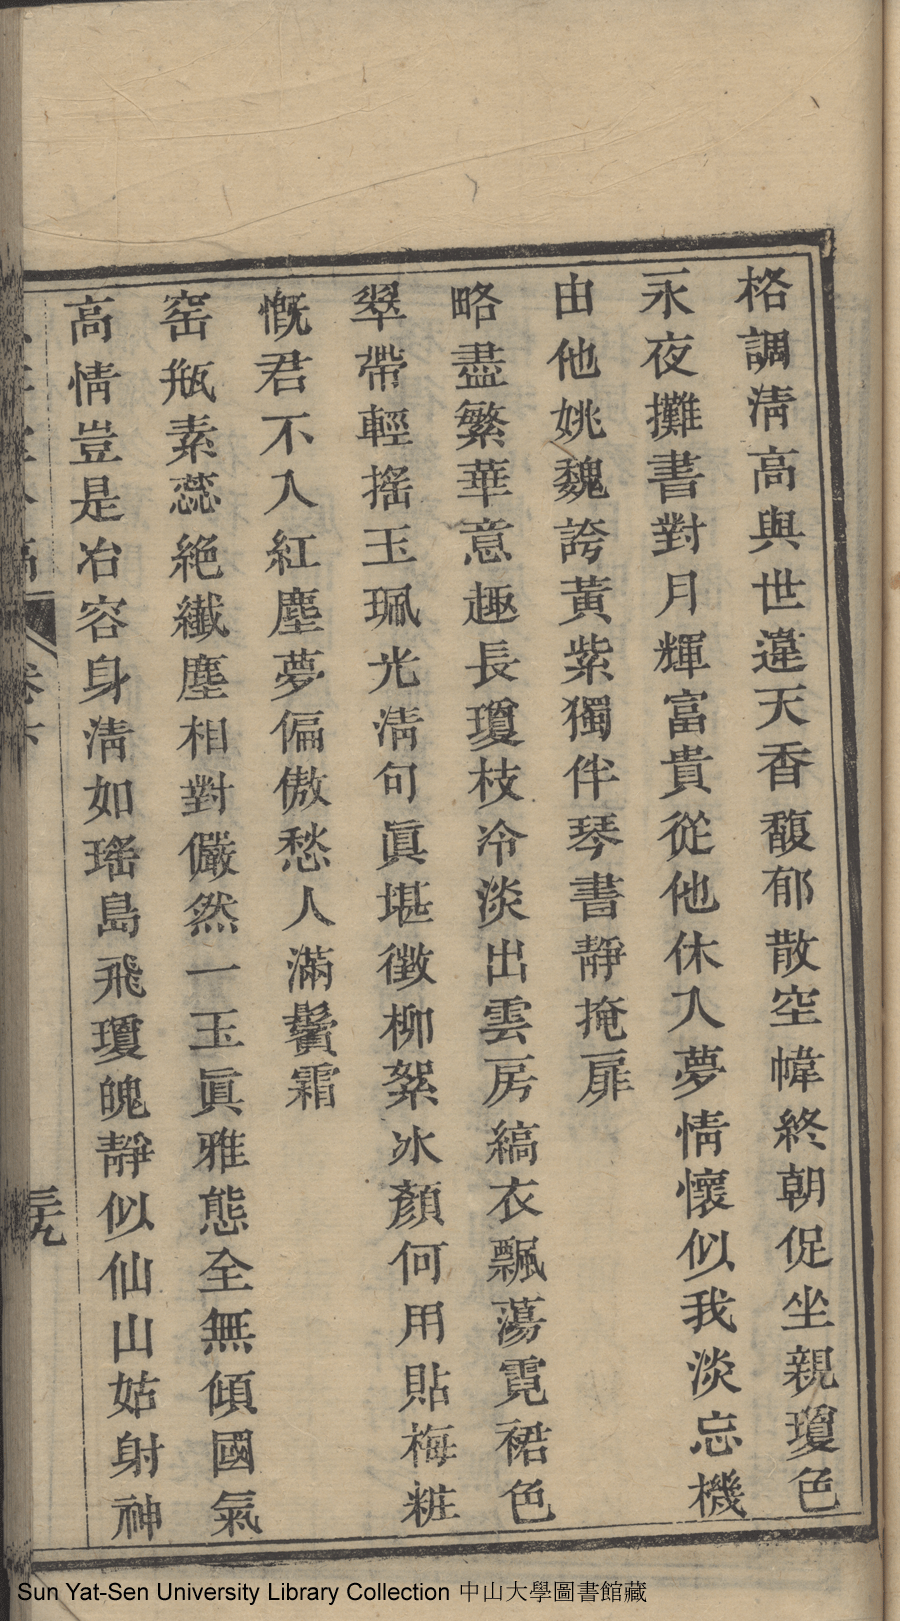 格調淸高與世違天香馥郁散空幃終朝促坐親瓊色
永夜攤書對月輝富貴從他休入夢情懷似我淡忘機
由他姚魏誇黃紫獨伴琴書靜掩扉
略盡繁華意趣長瓊枝冷淡出雲房縞衣飄蕩霓裙色
翠帶輕搖玉珮光淸句眞堪徵柳絮冰顏何用貼梅粧
慨君不入紅塵夢偏傲愁人滿鬢霜
窑瓶素蕊絕纖塵相對儼然一玉眞雅態全無傾國氣
高情豈是冶容身淸如瑤島飛瓊魄靜似仙山姑射神
卷六
三九
Sun Yat-Sen University Library Collection 中山大學圖書館藏